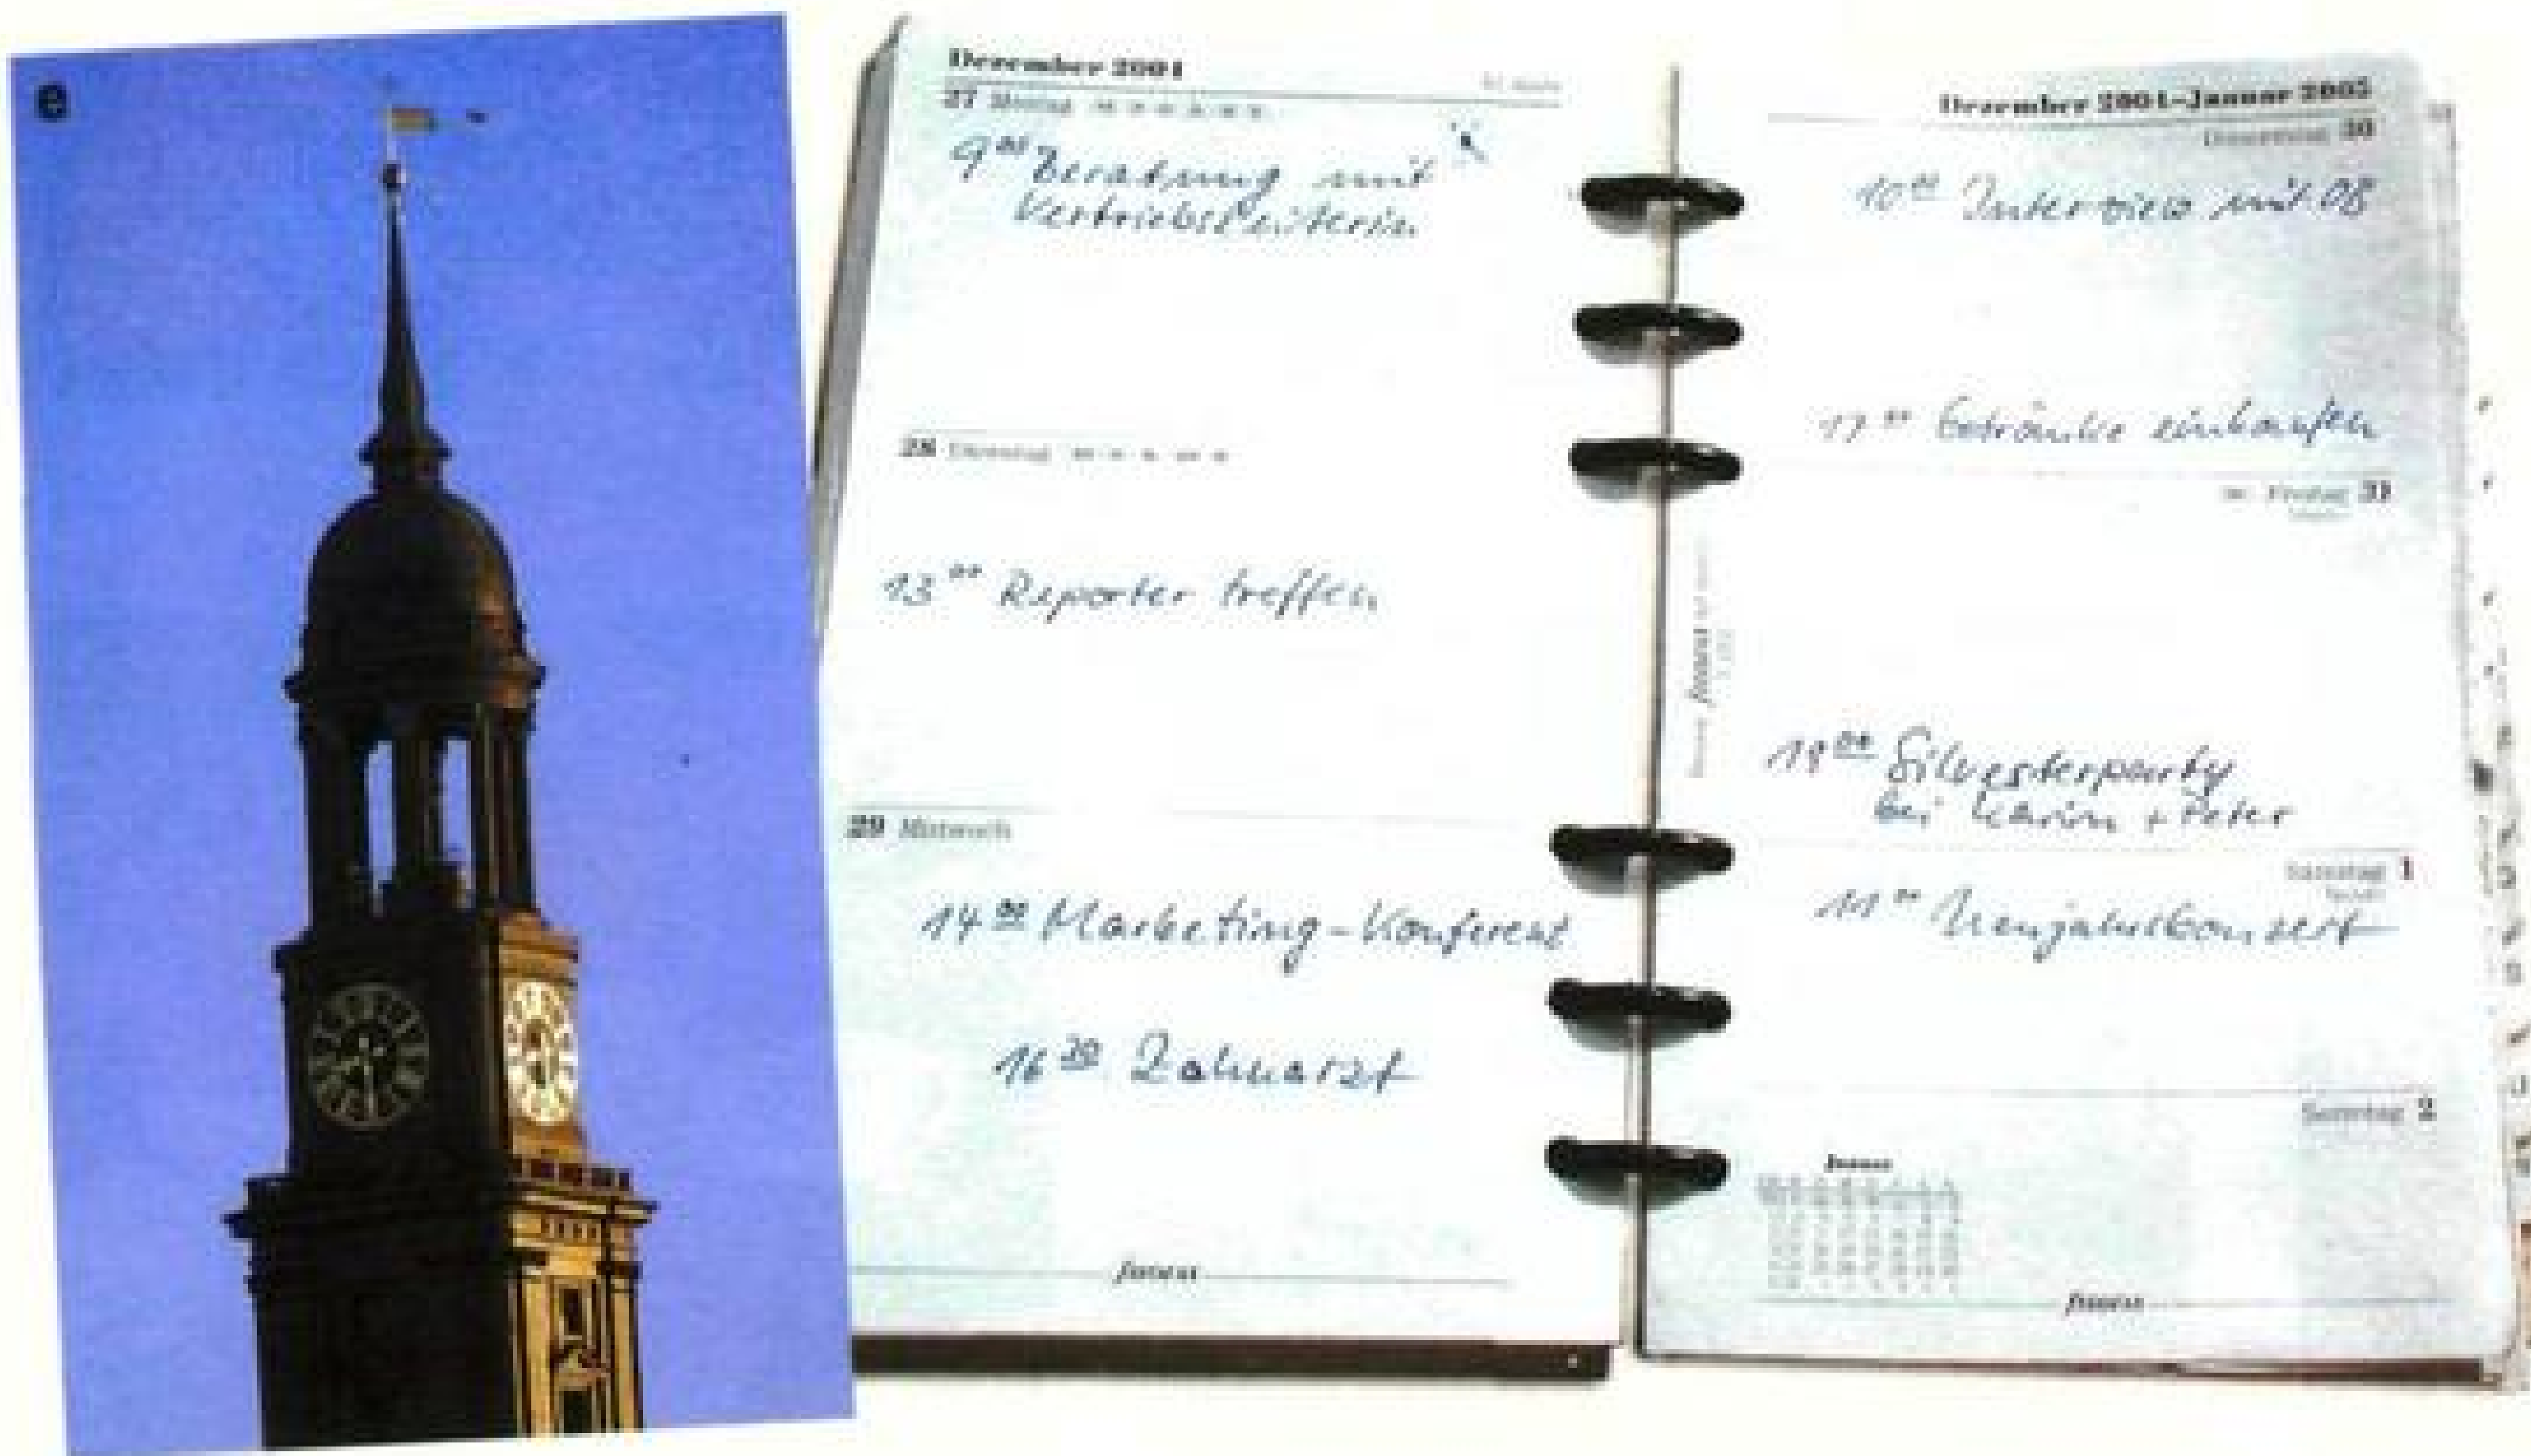 e
Dezember 2004
27 Montag
9⁰⁰ Beratung mit
Vertriebsleiterin
28 Dienstag
13⁰⁰ Reporter treffen
29 Mittwoch
14⁰⁰ Marketing-Konferenz
16³⁰ Zahnarzt
Dezember 2004-Januar 2005
Donnerstag 30
10⁰⁰ Interview mit OB
17⁰⁰ Getränke einkaufen
Freitag 31
19⁰⁰ Silvesterparty
bei Karin + Peter
Samstag 1
11⁰⁰ Neujahrskonzert
Sonntag 2
Januar